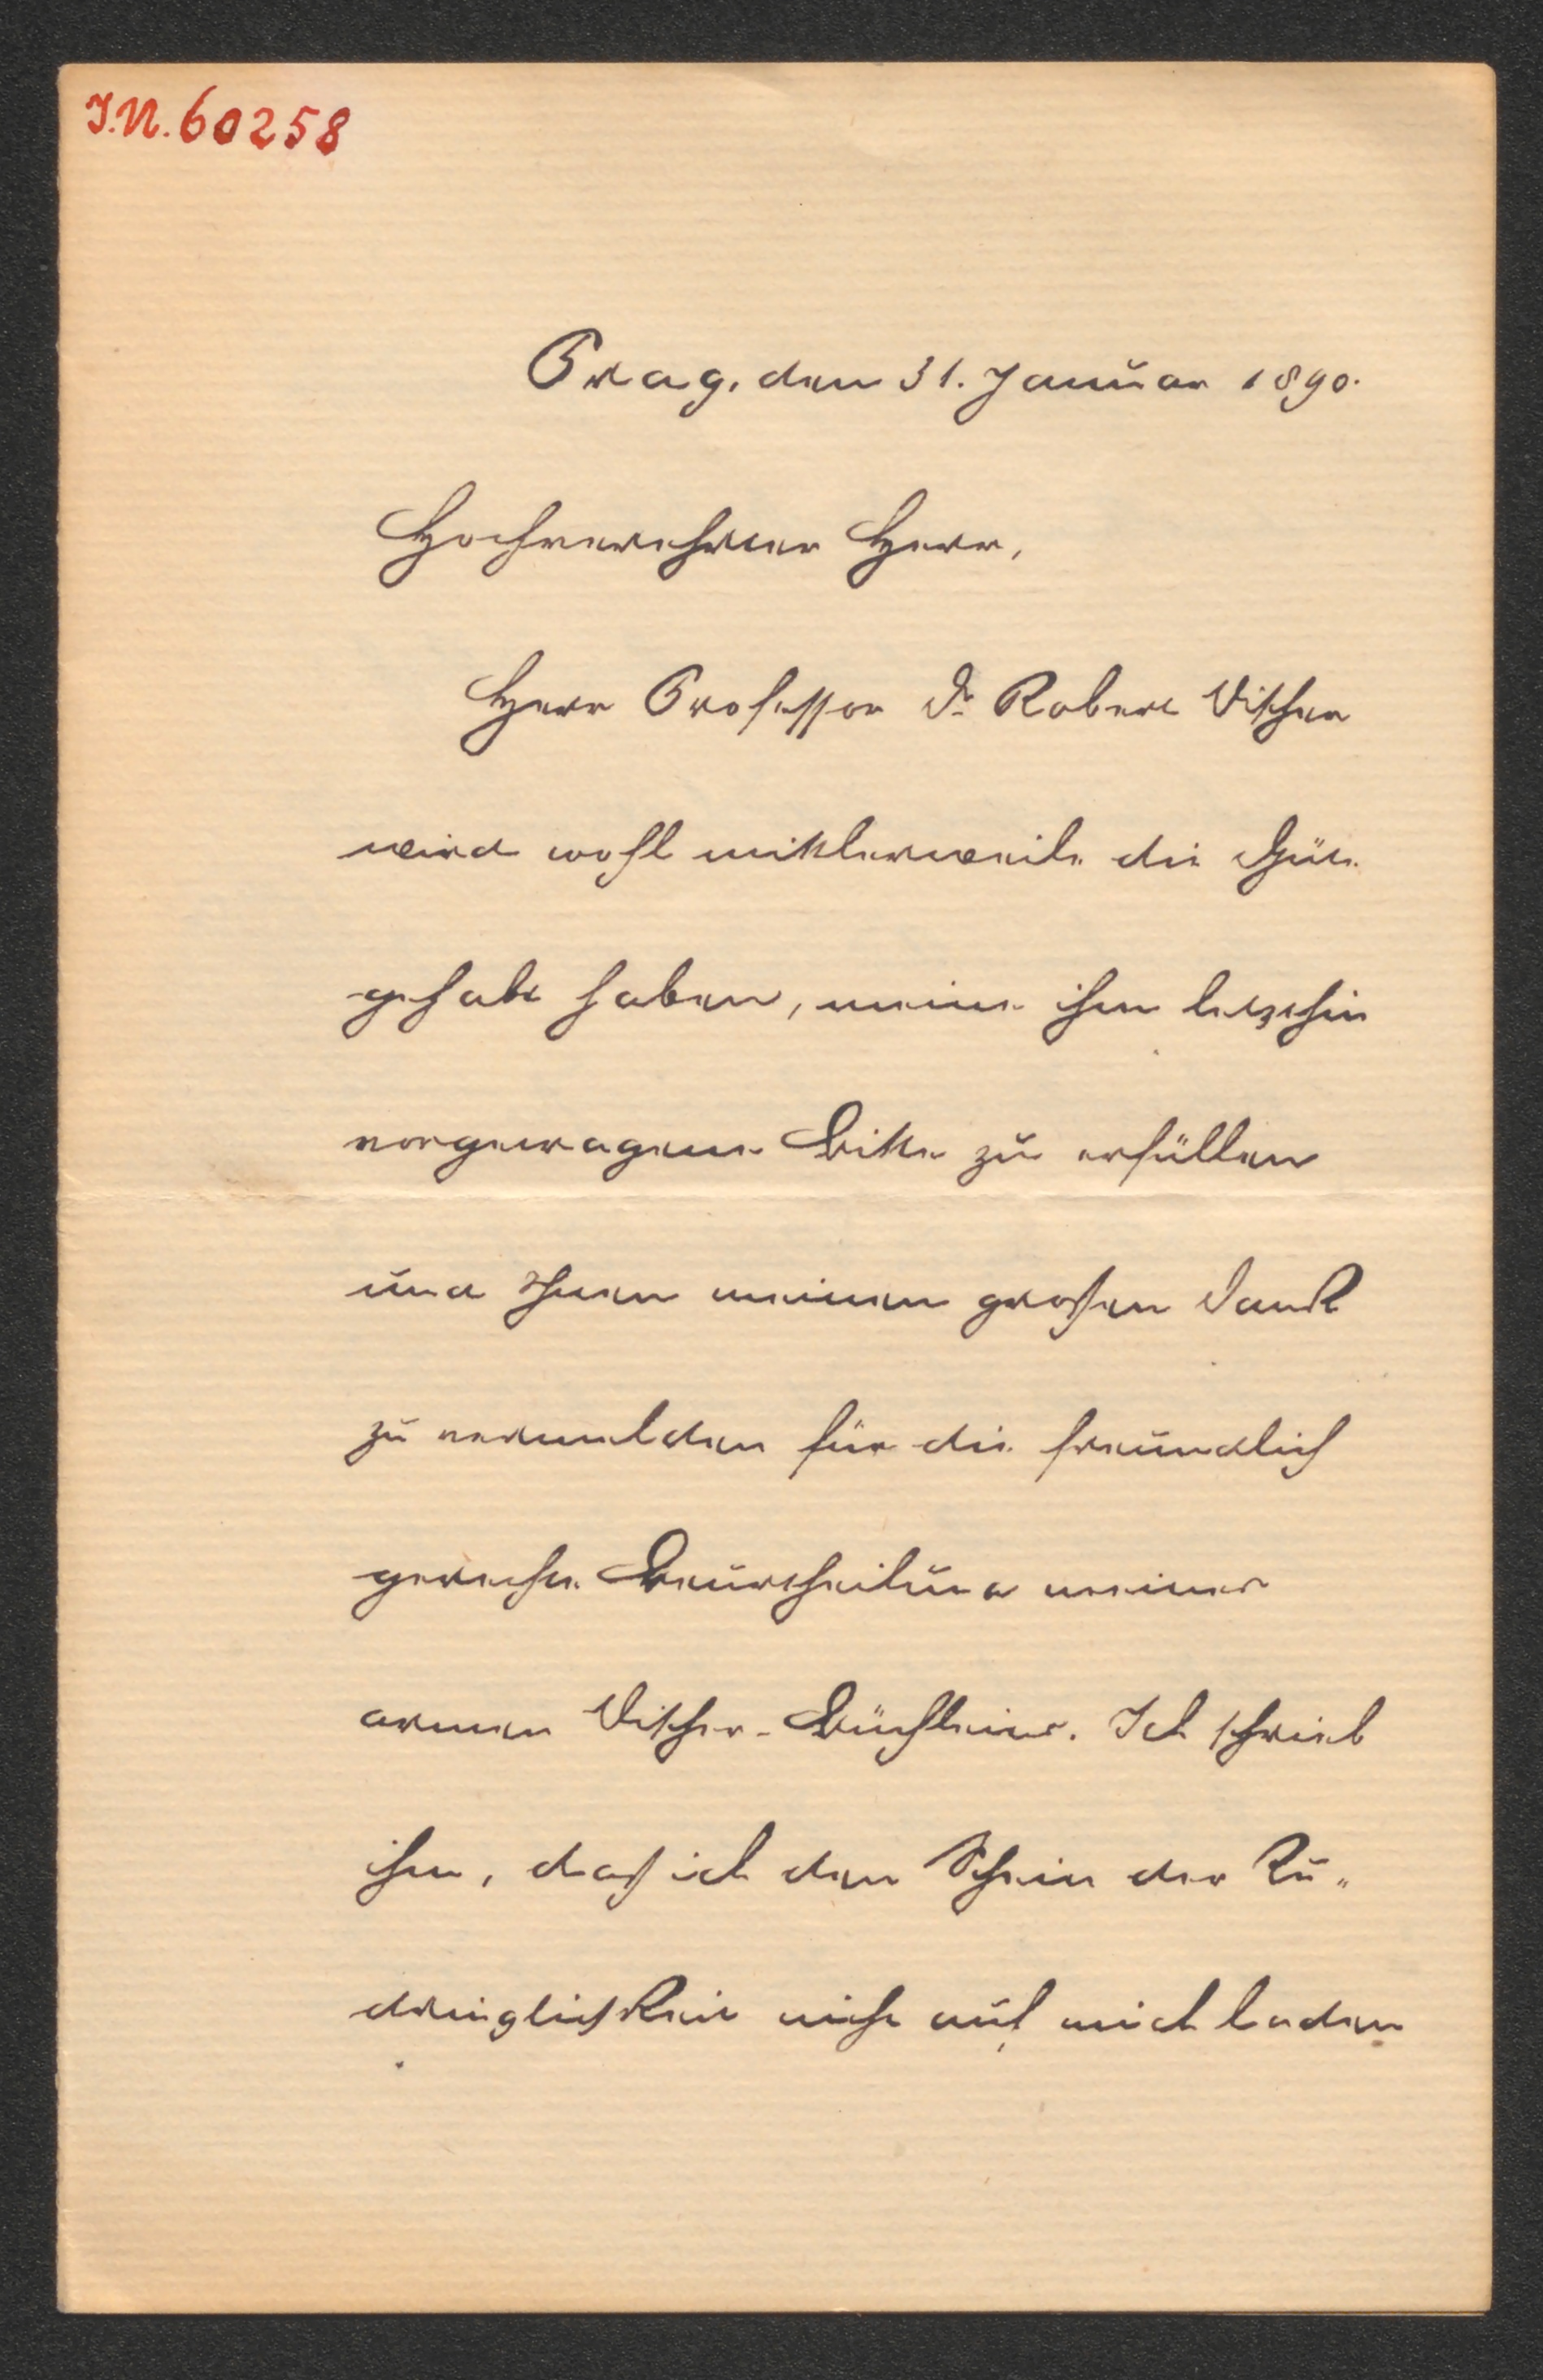 J.N. 60258
Prag, den 31. Januar 1890.
Hochverehrter Herr,
Herr Professor Dr Robert Vischer
wird wohl mittlerweile die Güte
gehabt haben, meine ihm letzthin
vorgetragene Bitte zu erfüllen
und Ihnen meinen großen Dank
zu vermelden für die freundlich
gerechte Beurtheilung meines
armen Vischer-Büchleins. Ich schrieb
ihm, daß ich den Schein der Zu„
dringlichkeit nicht auf mich laden